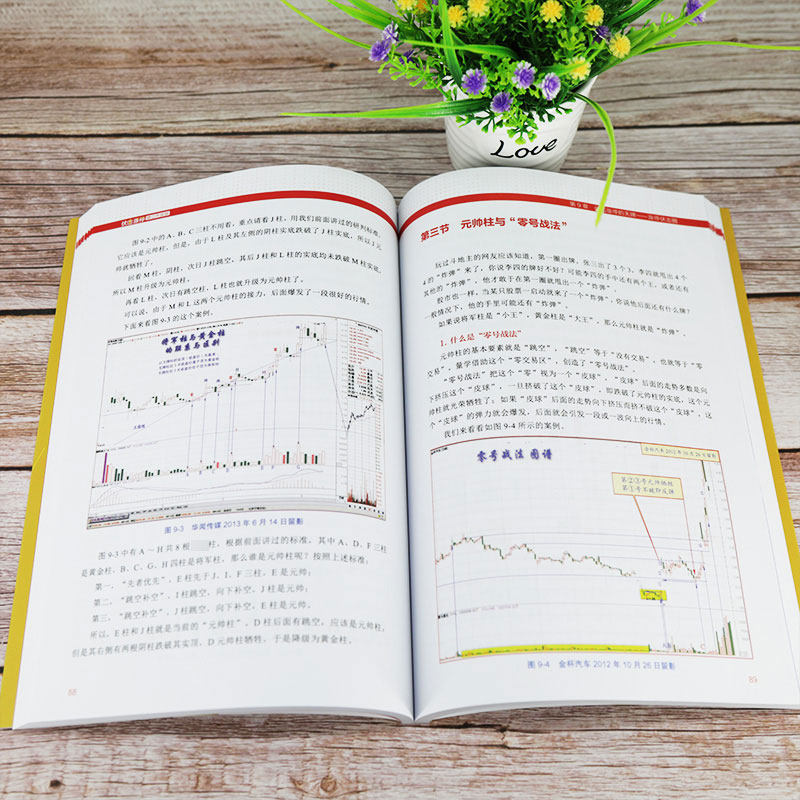 Love
伏击涨停
图9-2中的A、B、C三柱不用看，重点请看J柱，用我们前面讲过的研判标准，
它应该是元帅柱，但是，由于L柱及其左侧的阴柱实底跌破了J柱实底，所以J元
帅就牺牲了。
回看M柱，阴柱，次日J柱跳空，其后J柱和L柱的实底均未跌破M柱实底，
所以M柱升级为元帅柱。
再看L柱，次日有跳空柱，L柱也就升级为元帅柱了。
可以说，由于M和L这两个元帅柱的接力，后面爆发了一段很好的行情。
下面来看图9-3的这个案例。
将军柱与黄金柱
的联系与区别
图9-3 华闻传媒2013年6月14日留影
图9-3中有A～H共8根 柱，根据前面讲过的标准，其中A、D、F三柱
是黄金柱，B、C、G、H四柱是将军柱，那么谁是元帅柱呢？按照上述标准：
第一，“先者优先”，E柱先于J、I、F三柱，E是元帅；
第二，“跳空补空”，I柱跳空，向下补空，J柱是元帅；
第三，“跳空补空”，J柱跳空，向下补空，E柱是元帅。
所以，E柱和J柱就是当前的“元帅柱”，D柱后面有跳空，应该是元帅柱，
但是其右侧有两根阴柱跌破其实顶，D元帅柱牺牲，于是降级为黄金柱。
88
第9章
第三节 元帅柱与“零号战法”
玩过斗地主的网友应该知道，第一圈出牌，张三出了3个3，李四就甩出4个
4的“炸弹”来了，你说李四的牌好不好？可能李四的手中还有两个王，或者还有
其他的“炸弹”，他才敢于在第一圈甩出一个“炸弹”。
股市也一样，当某只股票一启动就来了一个“炸弹”，你说他后面还有什么牌？
一般情况下，他的手里可能还有“炸弹”。
如果说将军柱是“小王”，黄金柱是“大王”，那么元帅柱就是“炸弹”。
1. 什么是“零号战法”
元帅柱的基本要素就是“跳空”，“跳空”等于“没有交易”，也就等于“零
交易”，量学借助这个“零交易区”，创造了“零号战法”。
“零号战法”把这个“零”视为一个“皮球”，“皮球”后面的走势多数是向
下挤压这个“皮球”，一旦挤破了这个“皮球”，即跌破了元帅柱的实底，这个元
帅柱就光荣牺牲了；如果“皮球”后面的走势向下挤压而挤不破这个“皮球”，这
个“皮球”的弹力就会爆发，后面就会引发一段或一波向上的行情。
我们来看看如图9-4所示的案例。
零号战法图谱
金杯汽车2012年10月26日留影
第②③号元帅牺牲
第①号不破即反弹
图9-4 金杯汽车2012年10月26日留影
89